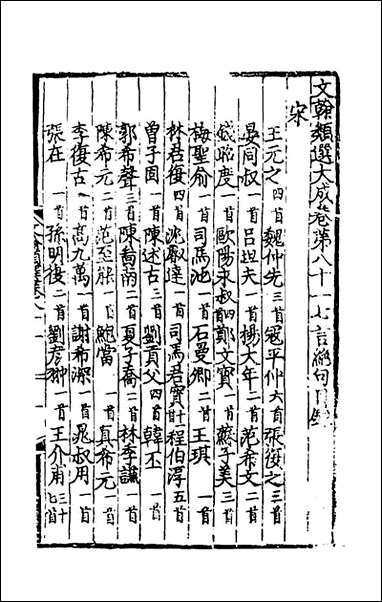 文翰類選大成卷第八十一七言絕句目錄
宋
王元之四首 魏仲先三首 寇平仲六首 張復之三首
晏同叔一首 呂坦夫一首 楊大年二首 范希文二首
錢昭度一首 歐陽永叔四首 鄭文寶一首 蘇子美三首
梅聖俞一首 司馬池一首 石曼卿二首 王琪一首
林君復四首 沈叡達一首 司馬君實 程伯淳五首
曾子固一首 陳述古三首 劉貢父四首 韓丕一首
郭希聲三首 陳喬 二首 夏子喬二首 林季謙一首
陳希元二首 范 一首 鮑當一首 真希元一首
李復古一首 高九萬一首 謝希深一首 晁叔用一首
張在一首 孫明復二首 劉彥翀一首 王介甫